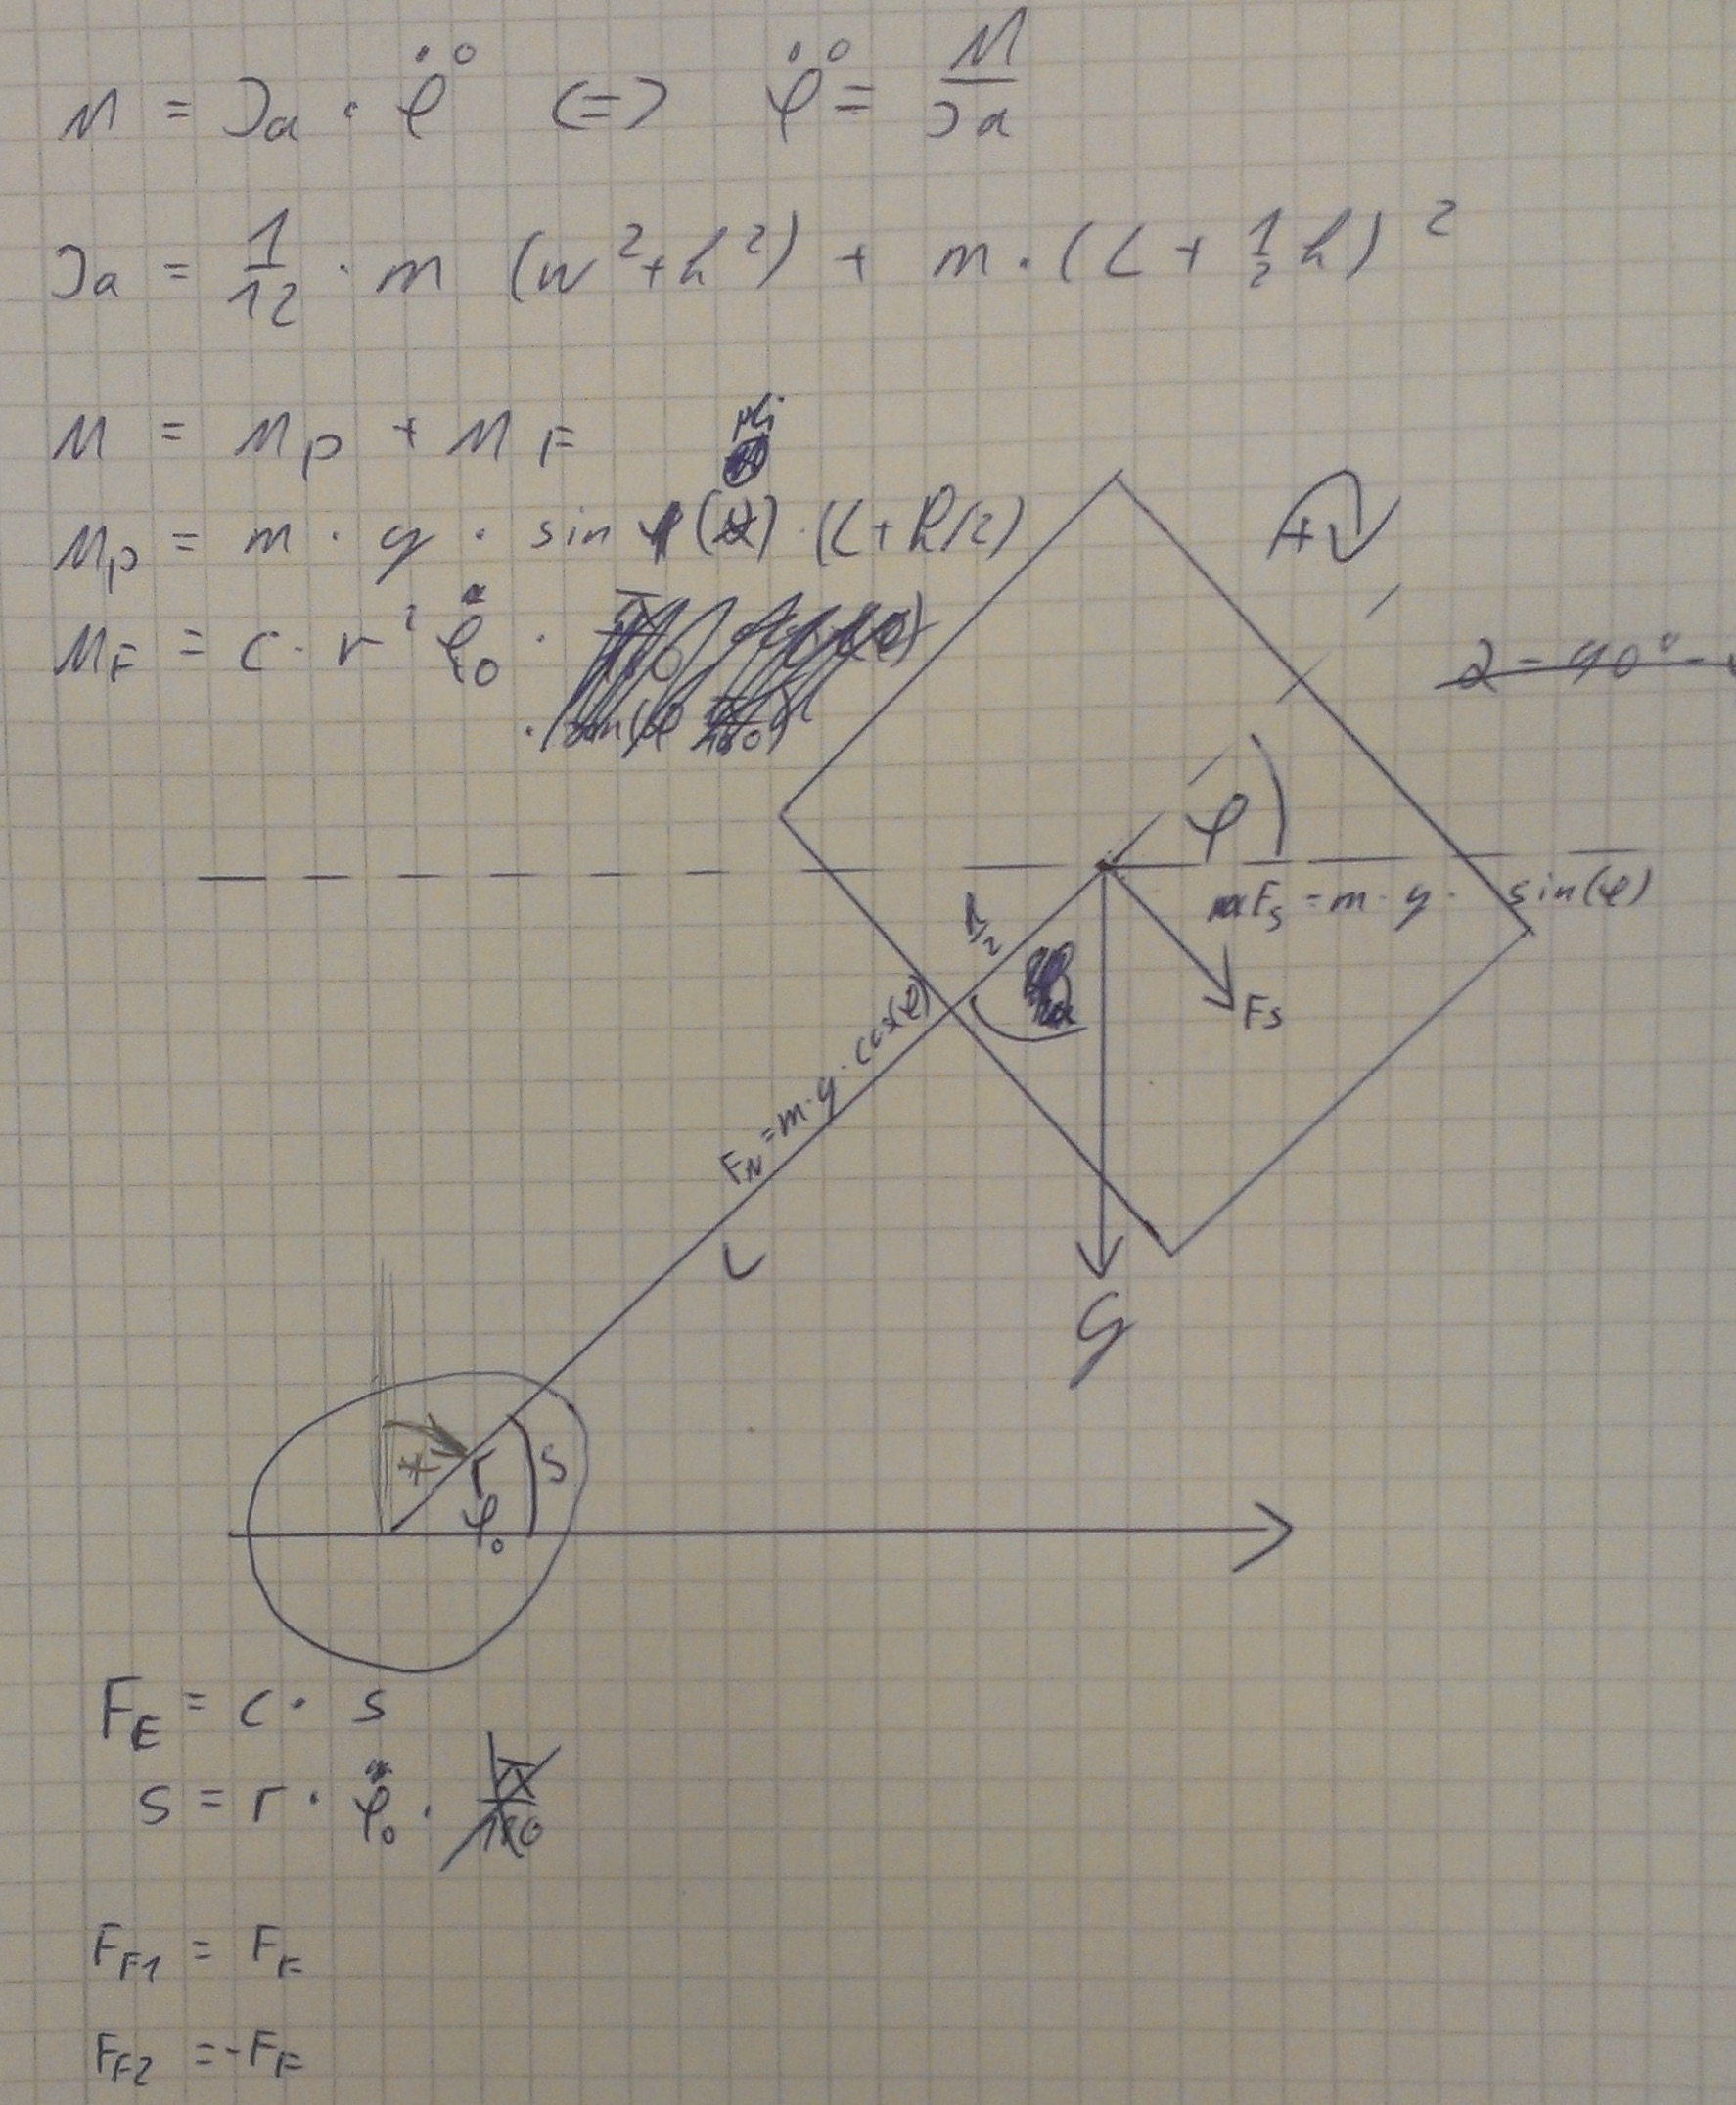 M = Ja · φ̈ (=) φ̈ = M/Ja
Ja = 1/12 · m (w² + h²) + m · (L + 1/2 h)²
M = M_P + M_F
phi
M_P = m · g · sin ( ) · (L + h/2)
M_F = c · r² φ₀ ·
+
φ
F_S = m · g · sin(φ)
h/2
F_S
F_N = m · g · cos(φ)
L
G
+
r
S
φ₀
F_E = c · s
s = r · φ₀ · π/180
F_F1 = F_F
F_F2 = -F_F